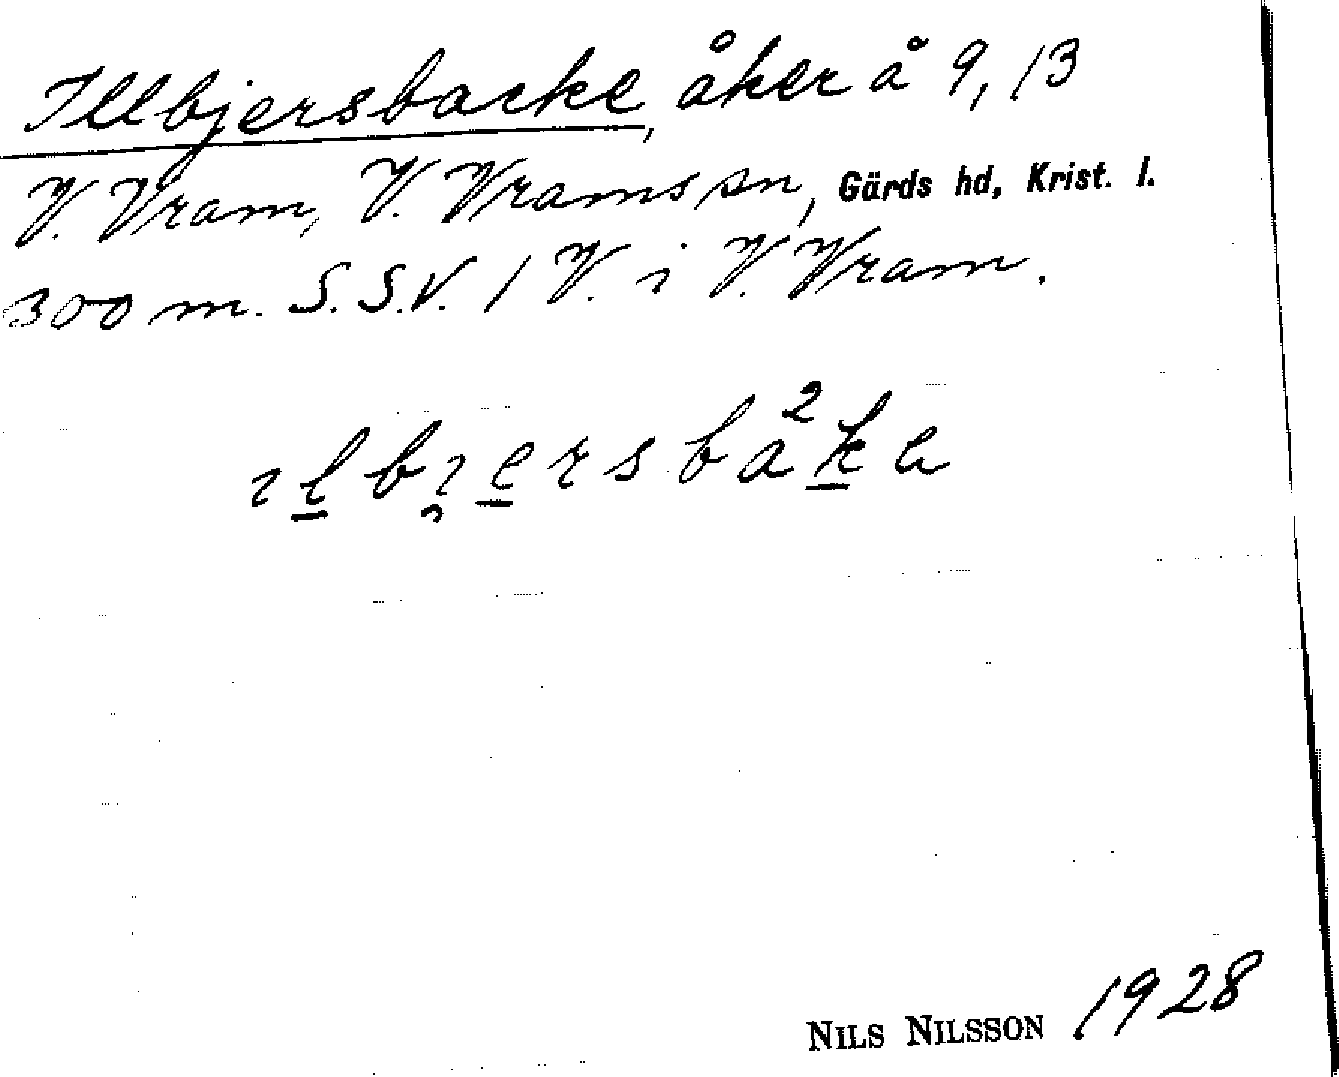 Illbjersbacke, åker å 9, 13
V. Vram, V. Vrams sn, Gärds hd, Krist. l.
300 m. S.S.V. / V. i V. Vram.
ılbı̯ersbà²ka
NILS NILSSON 1928